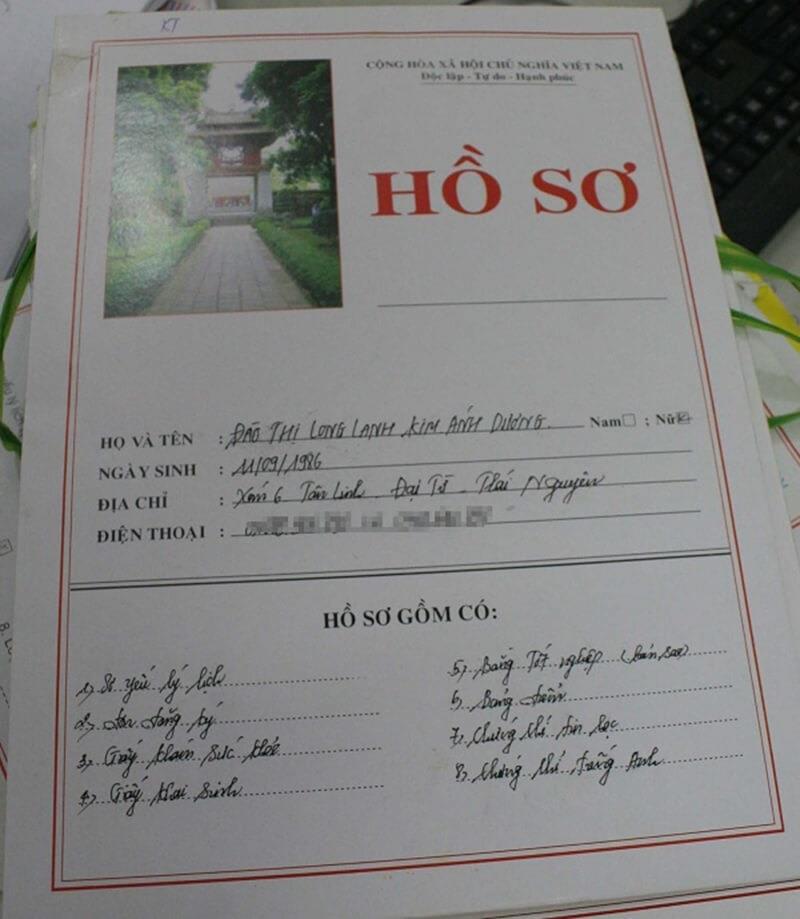 KT
CỘNG HÒA XÃ HỘI CHỦ NGHĨA VIỆT NAM
Độc lập - Tự do - Hạnh phúc
HỒ SƠ
HỌ VÀ TÊN : ĐÀO THỊ LONG LANH KIM ÁNH DƯƠNG. Nam ; Nữ
NGÀY SINH : 11/09/1986
ĐỊA CHỈ : Xóm 6 Tân Linh - Đại Từ - Thái Nguyên
ĐIỆN THOẠI :
HỒ SƠ GỒM CÓ:
1, Sơ yếu lý lịch
2, Đơn đăng ký
3, Giấy khám sức khỏe
4, Giấy khai sinh
5, Bằng tốt nghiệp (bản sao)
6, Bảng điểm
7, Chứng chỉ tin học
8, Chứng chỉ tiếng Anh